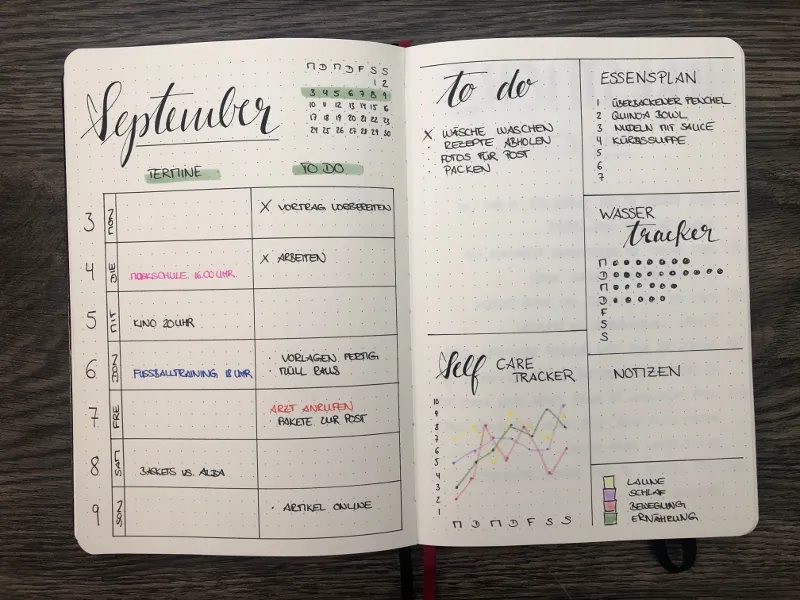 September
M D M D F S S
1 2
3 4 5 6 7 8 9
10 11 12 13 14 15 16
17 18 19 20 21 22 23
24 25 26 27 28 29 30
TERMINE
TO DO
3 MON
X VORTRAG VORBEREITEN
4 DIE
MUSIKSCHULE 16.00 UHR
X ARBEITEN
5 MIT
KINO 20 UHR
6 DON
FUSSBALLTRAINING 18 UHR
· VORLAGEN FERTIG
· MÜLL RAUS
7 FRE
ARZT ANRUFEN
· PAKETE ZUR POST
8 SAM
BASKETS VS. ALBA
9 SON
· ARTIKEL ONLINE
to do
X WÄSCHE WASCHEN
· REZEPTE ABHOLEN
· FOTOS FÜR POST
· PACKEN
Self CARE
TRACKER
10
9
8
7
6
5
4
3
2
1
M D M D F S S
ESSENSPLAN
1 ÜBERBACKENER FENCHEL
2 QUINOA BOWL
3 NUDELN MIT SAUCE
4 KÜRBISSUPPE
5
6
7
WASSER
tracker
M
D
M
D
F
S
S
NOTIZEN
LAUNE
SCHLAF
BEWEGUNG
ERNÄHRUNG